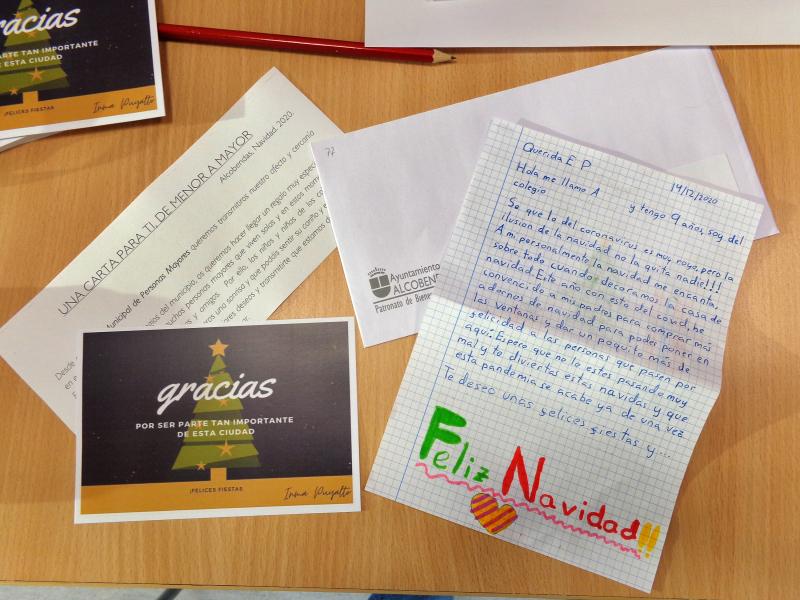 gracias
PARTE TAN IMPORTANTE
ESTA CIUDAD
¡FELICES FIESTAS
Inma Puyalto
UNA CARTA PARA TI, DE MENOR A MAYOR
Alcobendas, Navidad, 2020.
Municipal de Personas Mayores queremos transmitiros nuestro afecto y cercanía
del municipio, os queremos hacer llegar un regalo muy
muchas personas mayores que viven solas y en estos
y amigos. Por ello, los niños y niñas de los
una sonrisa y que podáis sentir su cariño y
deseos y transmitirte que estamos
Desde
en
gracias
POR SER PARTE TAN IMPORTANTE
DE ESTA CIUDAD
¡FELICES FIESTAS
Inma Puyalto
77
Ayuntamiento
ALCOBEN
Patronato de Bienes
Querida E P
14/12/2020
Hola me llamo A y tengo 9 años, soy del
colegio
Se que lo del coronavirus es muy royo, pero la
ilusion de la navidad no la quita nadie!!!
A mi personalmente la navidad me encanta,
sobre todo cuando decoramos la casa de
navidad. Este año con esto del covid, he
convencido a mis padres para comprar más
adornos de navidad para poder poner en
las ventanas y dar un poquito más de
felicidad a las personas que pasen por
aquí. Espero que no lo estes pasando muy
mal y te diviertas estas navidas y que
esta pandemia se acabe ya de una vez.
Te deseo unas felices fiestas y...
Feliz Navidad!!